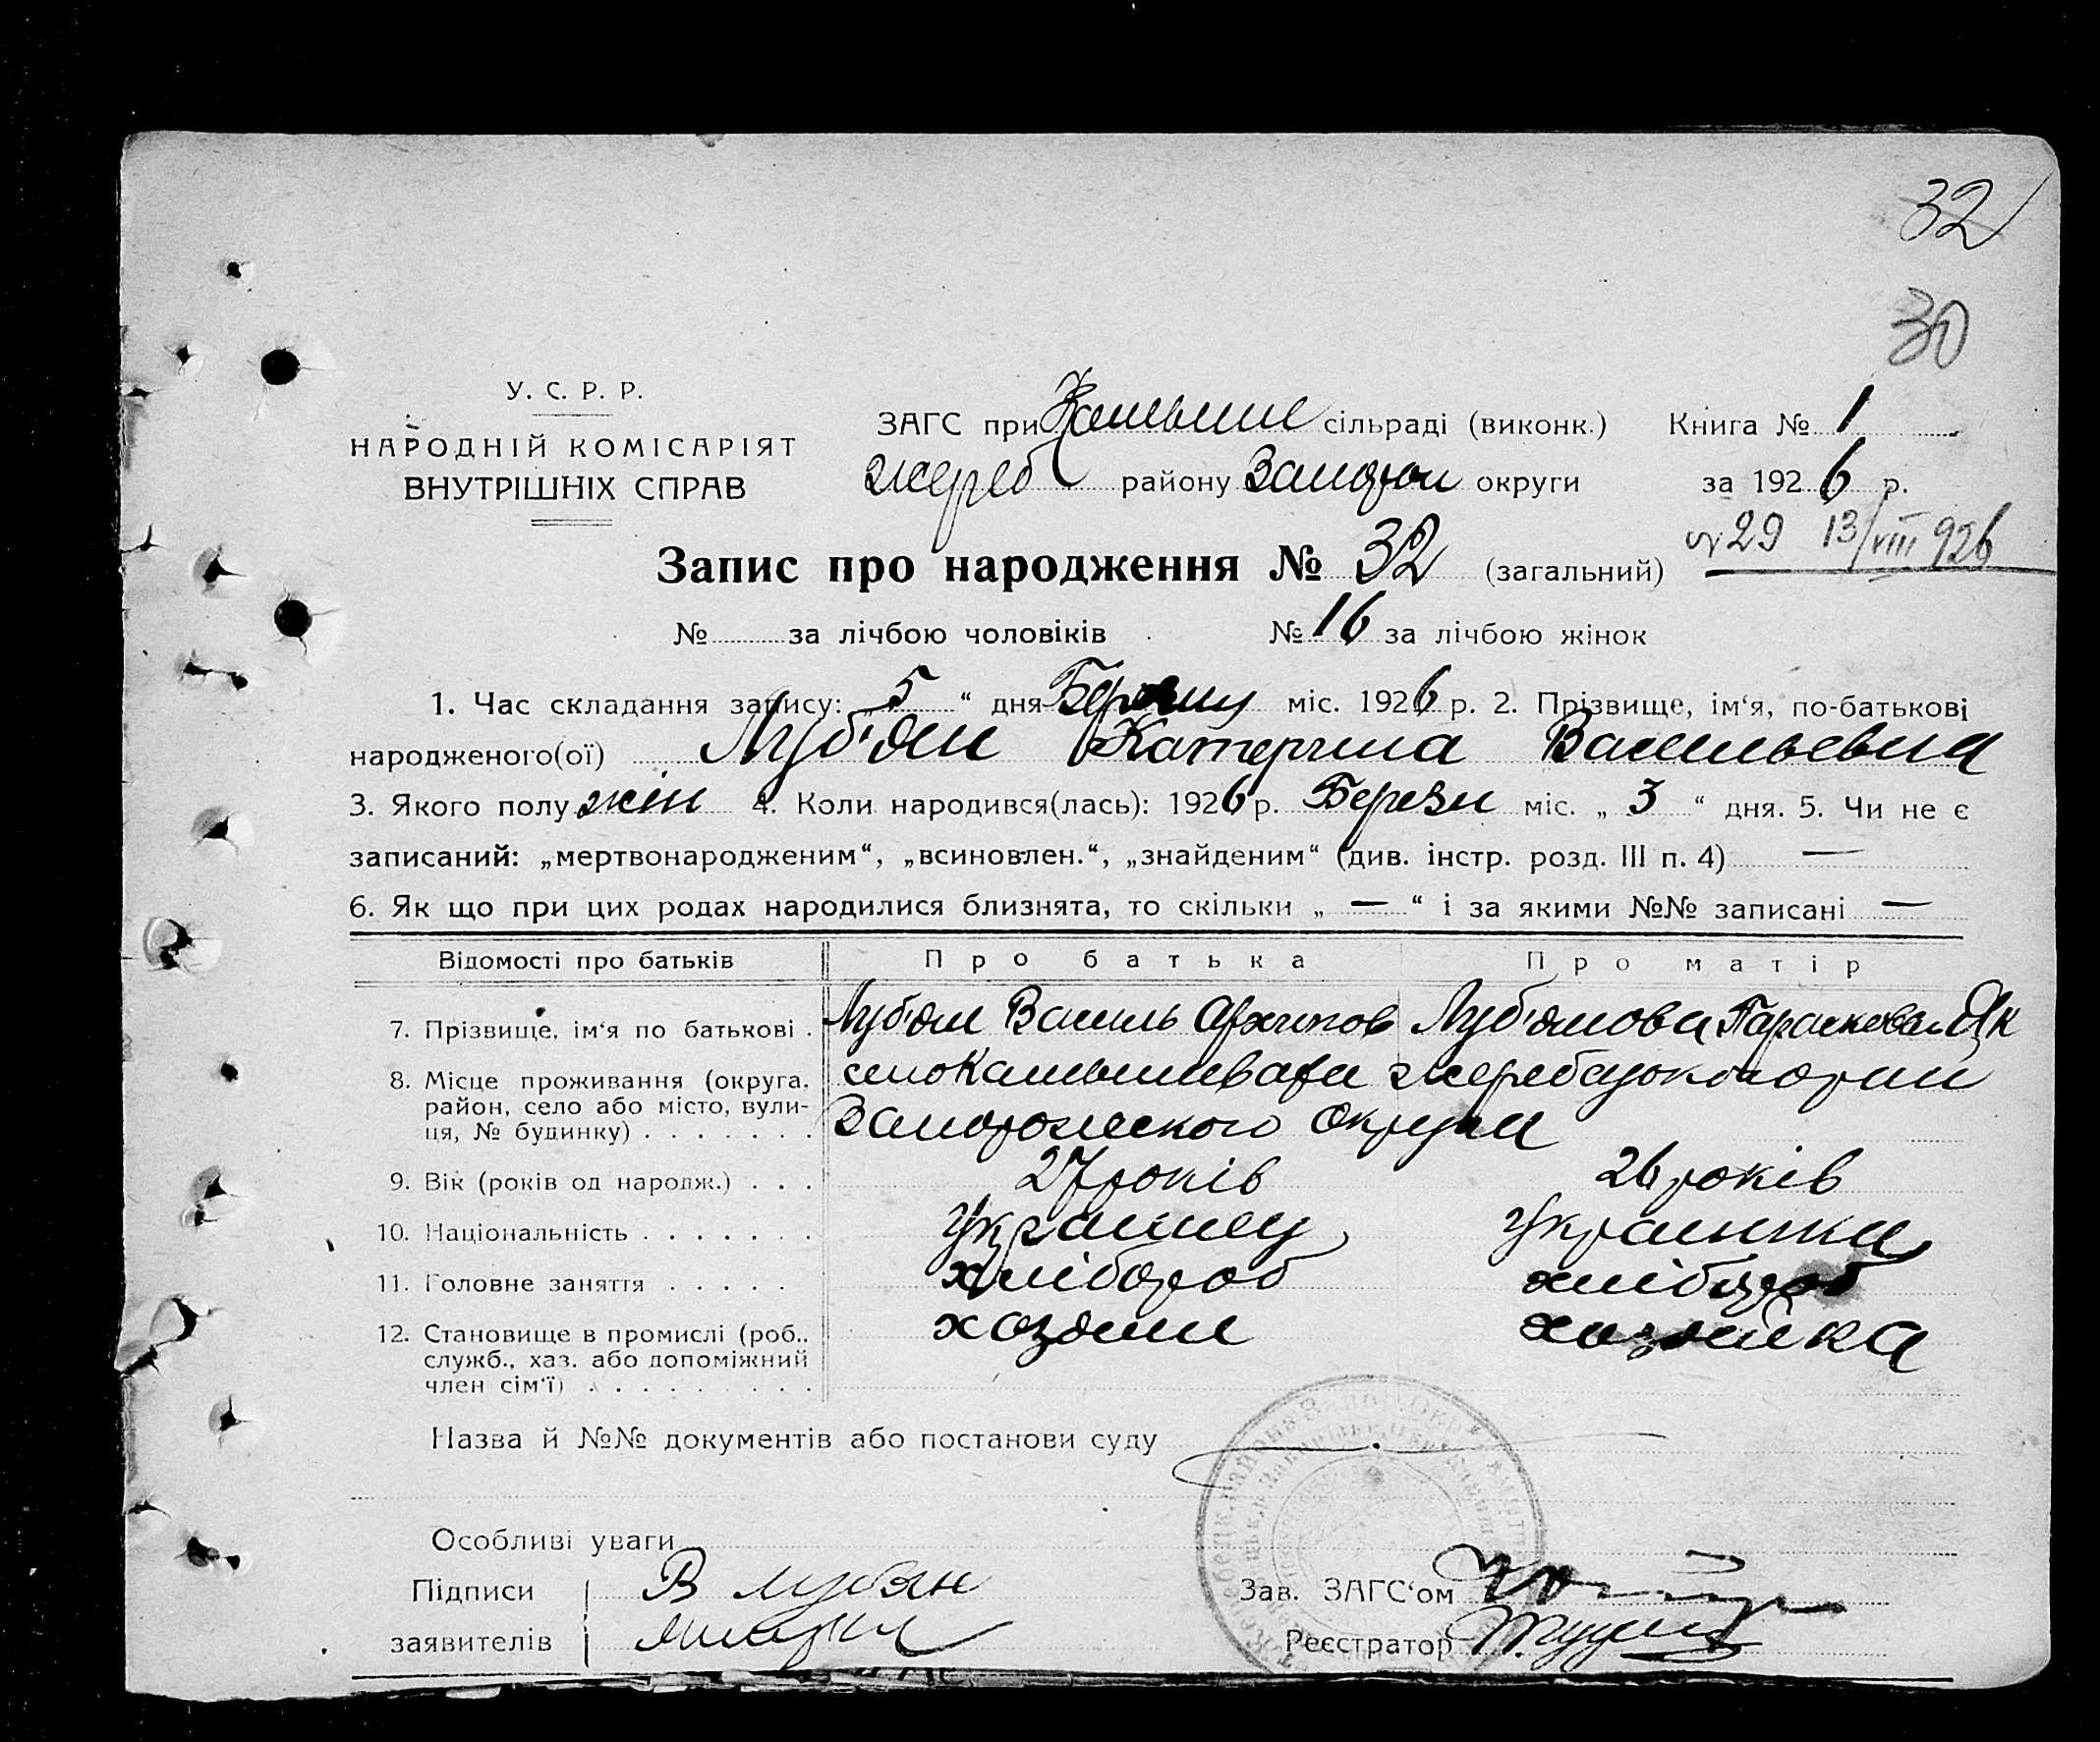 32
30
У. С. Р. Р.
НАРОДНІЙ КОМІСАРІЯТ
ВНУТРІШНІХ СПРАВ
ЗАГС при сільраді (виконк.) Книга № 1
жереб району Запорож округи за 1926 р.
29 13/VIII 926
Запис про народження № 32 (загальний)
№ за лічбою чоловіків № 16 за лічбою жінок
1. Час складання запису: „ 5 “ дня міс. 1926 р. 2. Прізвище, ім‘я, по-батькові
народженого(ої) Луб'ян Катерина Васильевна
3. Якого полу жін 4. Коли народився(лась): 1926 р. Березн міс. „ 3 “ дня. 5. Чи не є
записаний: „мертвонародженим“, „всиновлен.“, „знайденим“ (див. інстр. розд. III п. 4) —
6. Як що при цих родах народилися близнята, то скільки „ — “ і за якими №№ записані —
Відомості про батьків Про батька Про матір
7. Прізвище, ім‘я по батькові . Луб'ян Василь Архипов Луб'янова Параскева Як
8. Місце проживання (округа, село
район, село або місто, вули-
ця, № будинку) . . . . . . . Запорожского Округи
9. Вік (років од народж.) . . . 27 років 26 років
10. Національність . . . . . . . украинец украинка
11. Головне заняття . . . . . хлібороб хлібороб
12. Становище в промислі (роб., хозяин хозяйка
служб., хаз. або допоміжний
член сім‘ї) . . . . . . . . .
Назва й №№ документів або постанови суду
Особливі уваги
Підписи В Лубян
заявителів
Зав. ЗАГС‘ом
Реєстратор